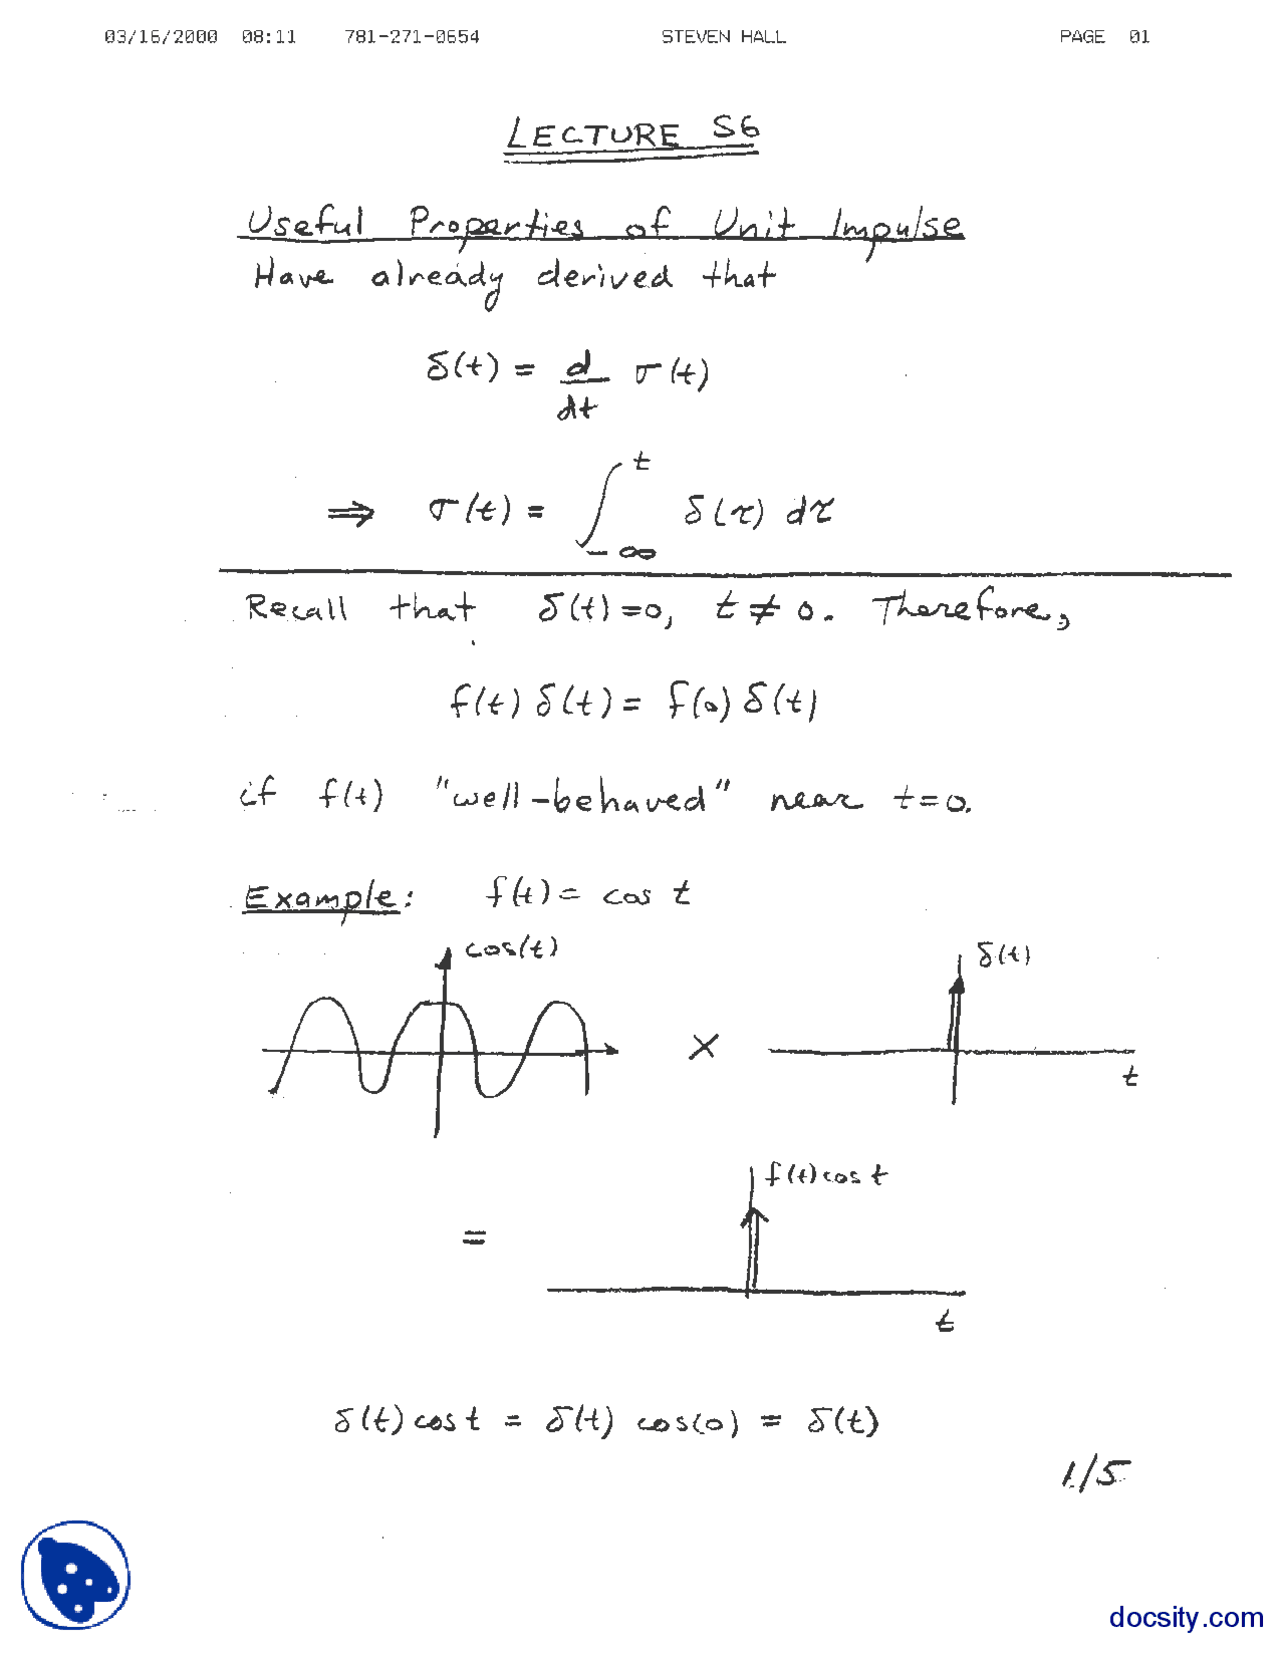 03/16/2000 08:11 781-271-0654 STEVEN HALL PAGE 01
LECTURE S6
Useful Properties of Unit Impulse
Have already derived that
δ(t) = d/dt σ(t)
⇒ σ(t) = ∫_{-∞}^{t} δ(τ) dτ
Recall that δ(t)=0, t ≠ 0. Therefore,
f(t) δ(t) = f(0) δ(t)
if f(t) "well-behaved" near t=0.
Example: f(t) = cos t
cos(t)
δ(t)
×
t
f(t) cos t
=
t
δ(t) cos t = δ(t) cos(0) = δ(t)
1/5
docsity.com